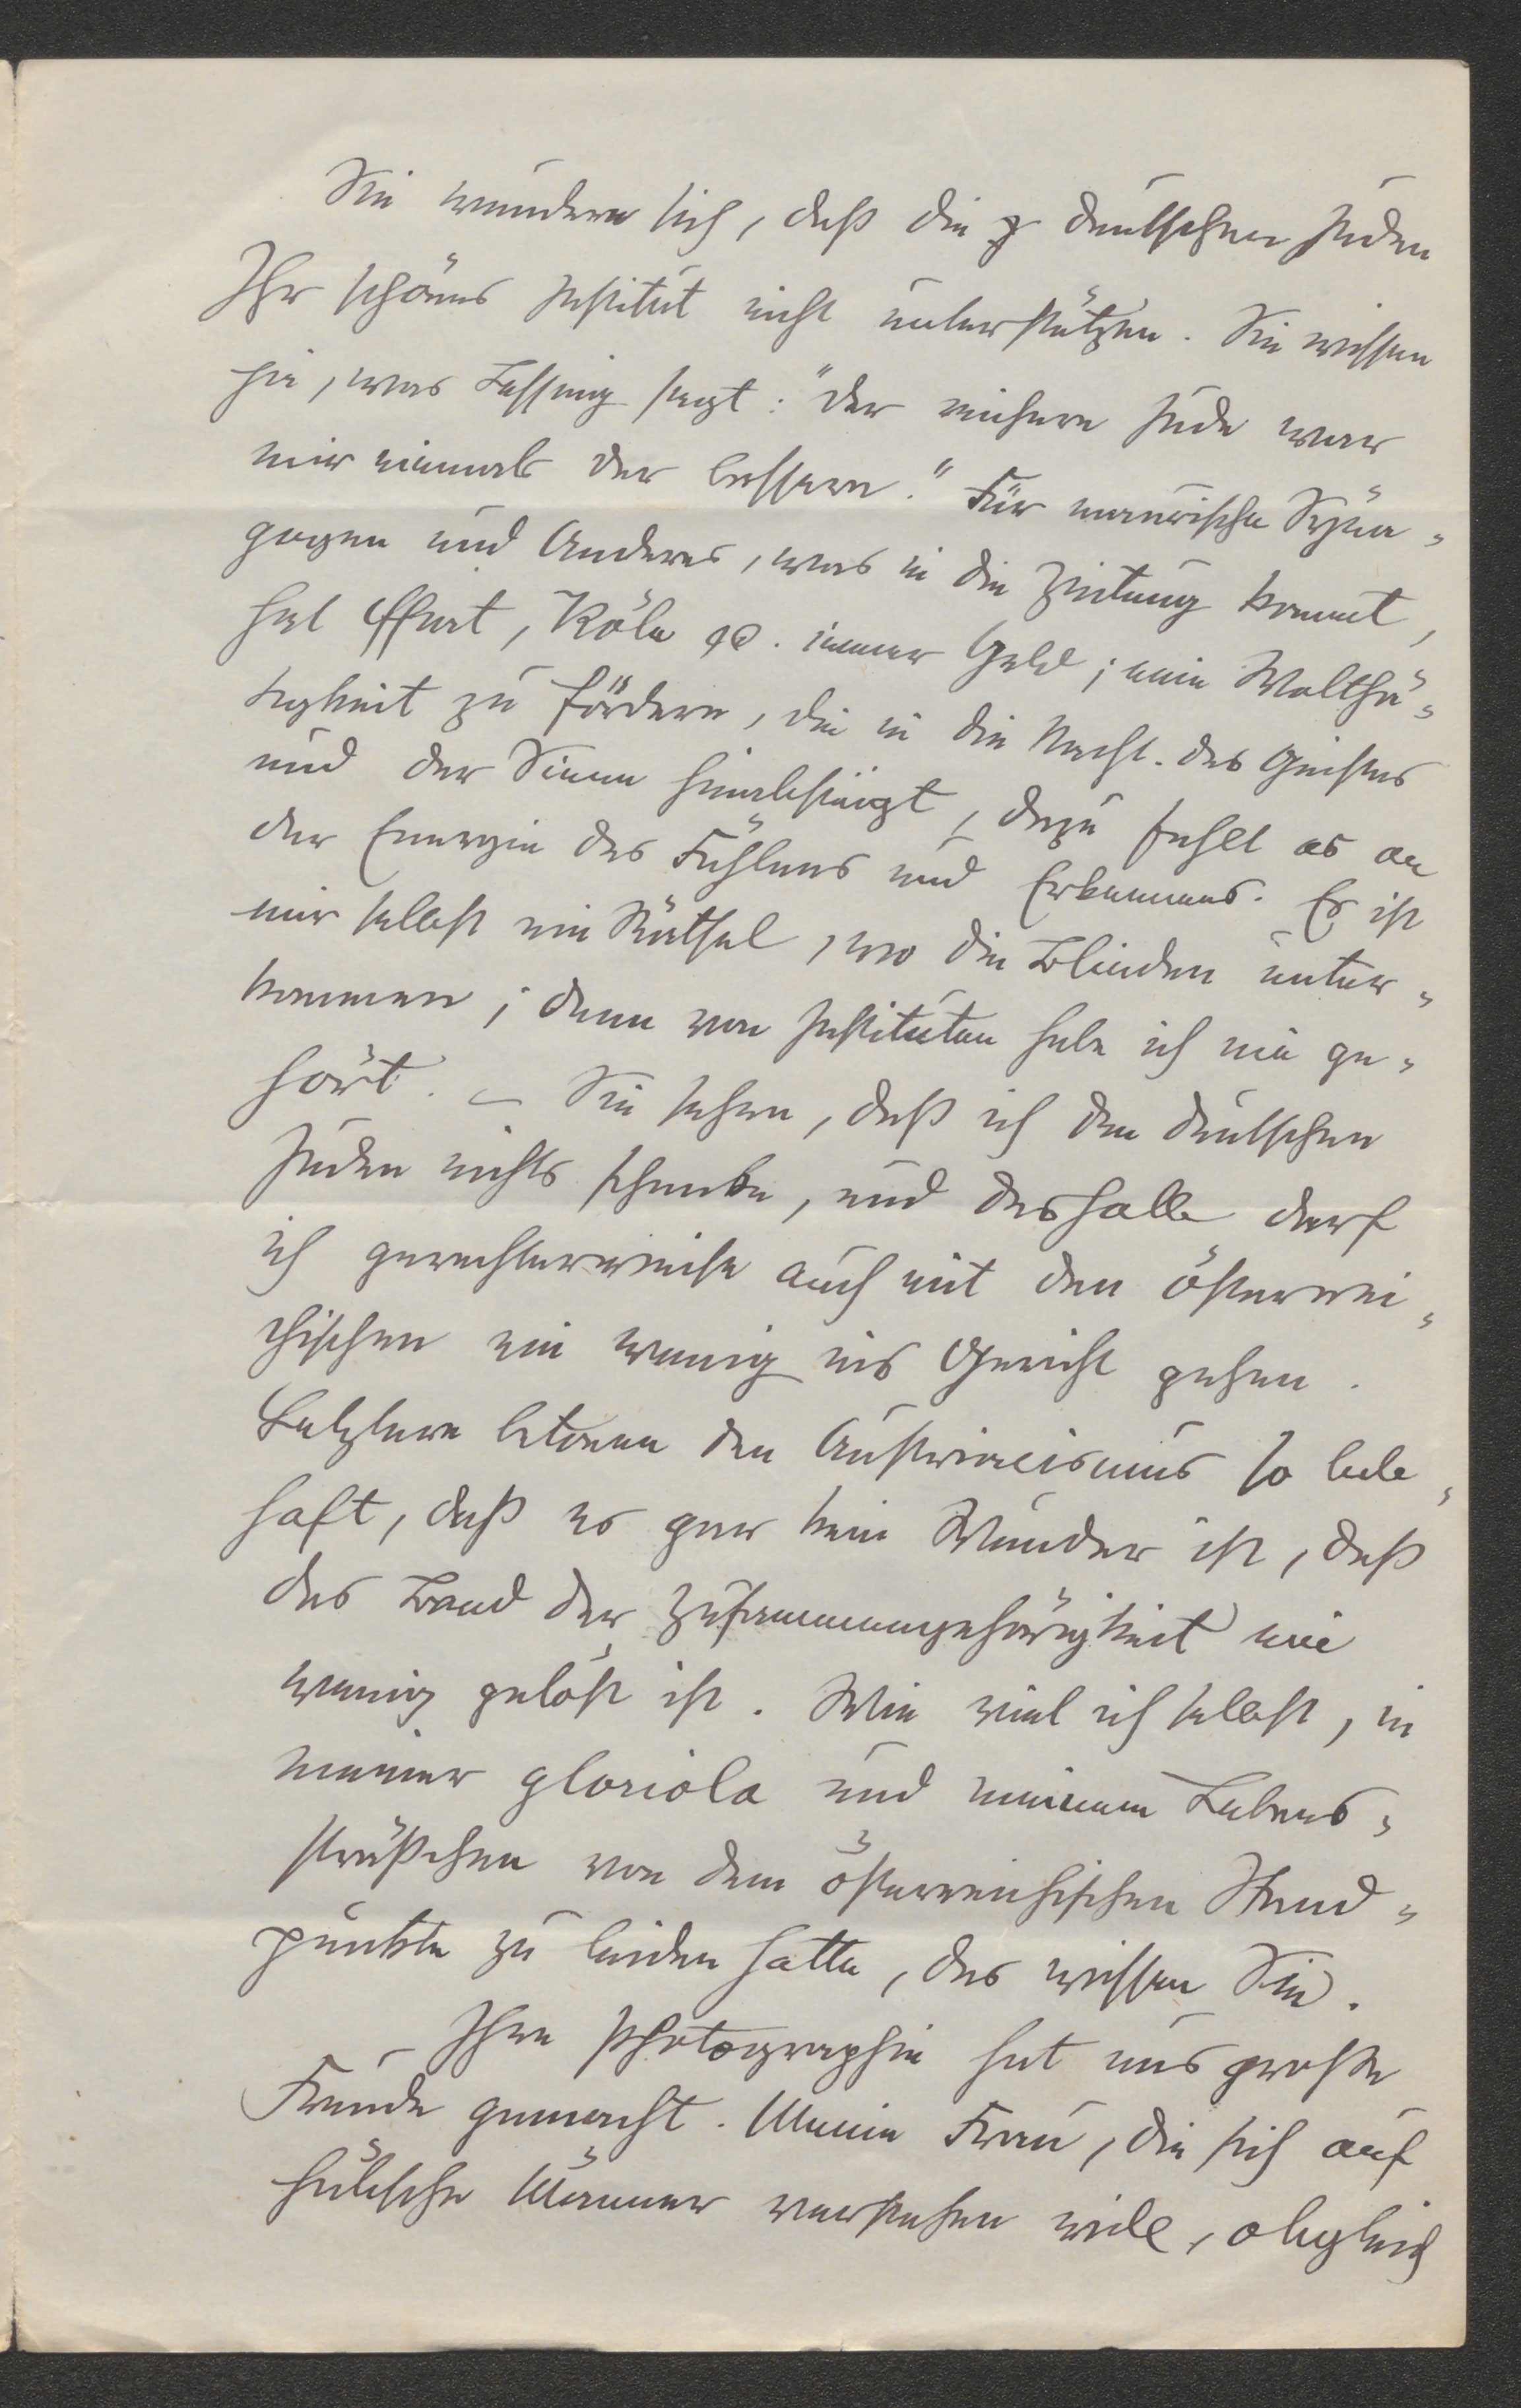 Sie wundern sich, daß die deutschen Juden
Ihr schönes Institut nicht unterstützen. Sie wissen
ja, was Lessing sagt: "Der reichere Jude war
mir niemals der bessere." Für maurische Syna-
gogen und Anderes, was in die Zeitung kommt,
hat Ffurt, Köln pp. immer Geld; eine Wolthä-
tigkeit zu fördern, die in die Nacht des Geistes
und der Sinne hinabsteigt, dazu fehlt es an
der Energie des Fühlens und Erkennens. Es ist
mir selbst ein Räthsel, wo die Blinden unter-
kommen; denn von Instituten habe ich nie ge-
hört. — Sie sehen, daß ich den deutschen
Juden nichts schenke, und deshalb darf
ich gerechterweise auch mit den österrei-
chischen ein wenig ins Gericht gehen.
Letztere betonen den Austriacismus so leb-
haft, daß es gar kein Wunder ist, daß
das Band der Zusammengehörigkeit ein
wenig gelöst ist. Wie viel ich selbst, in
meiner gloriola und meinem Lebens-
sträßchen von dem österreichischen Stand-
punkte zu leiden hatte, das wissen Sie.
Ihre Photographie hat uns große
Freude gemacht. Meine Frau, die sich auf
hübsche Männer verstehen will, obgleich